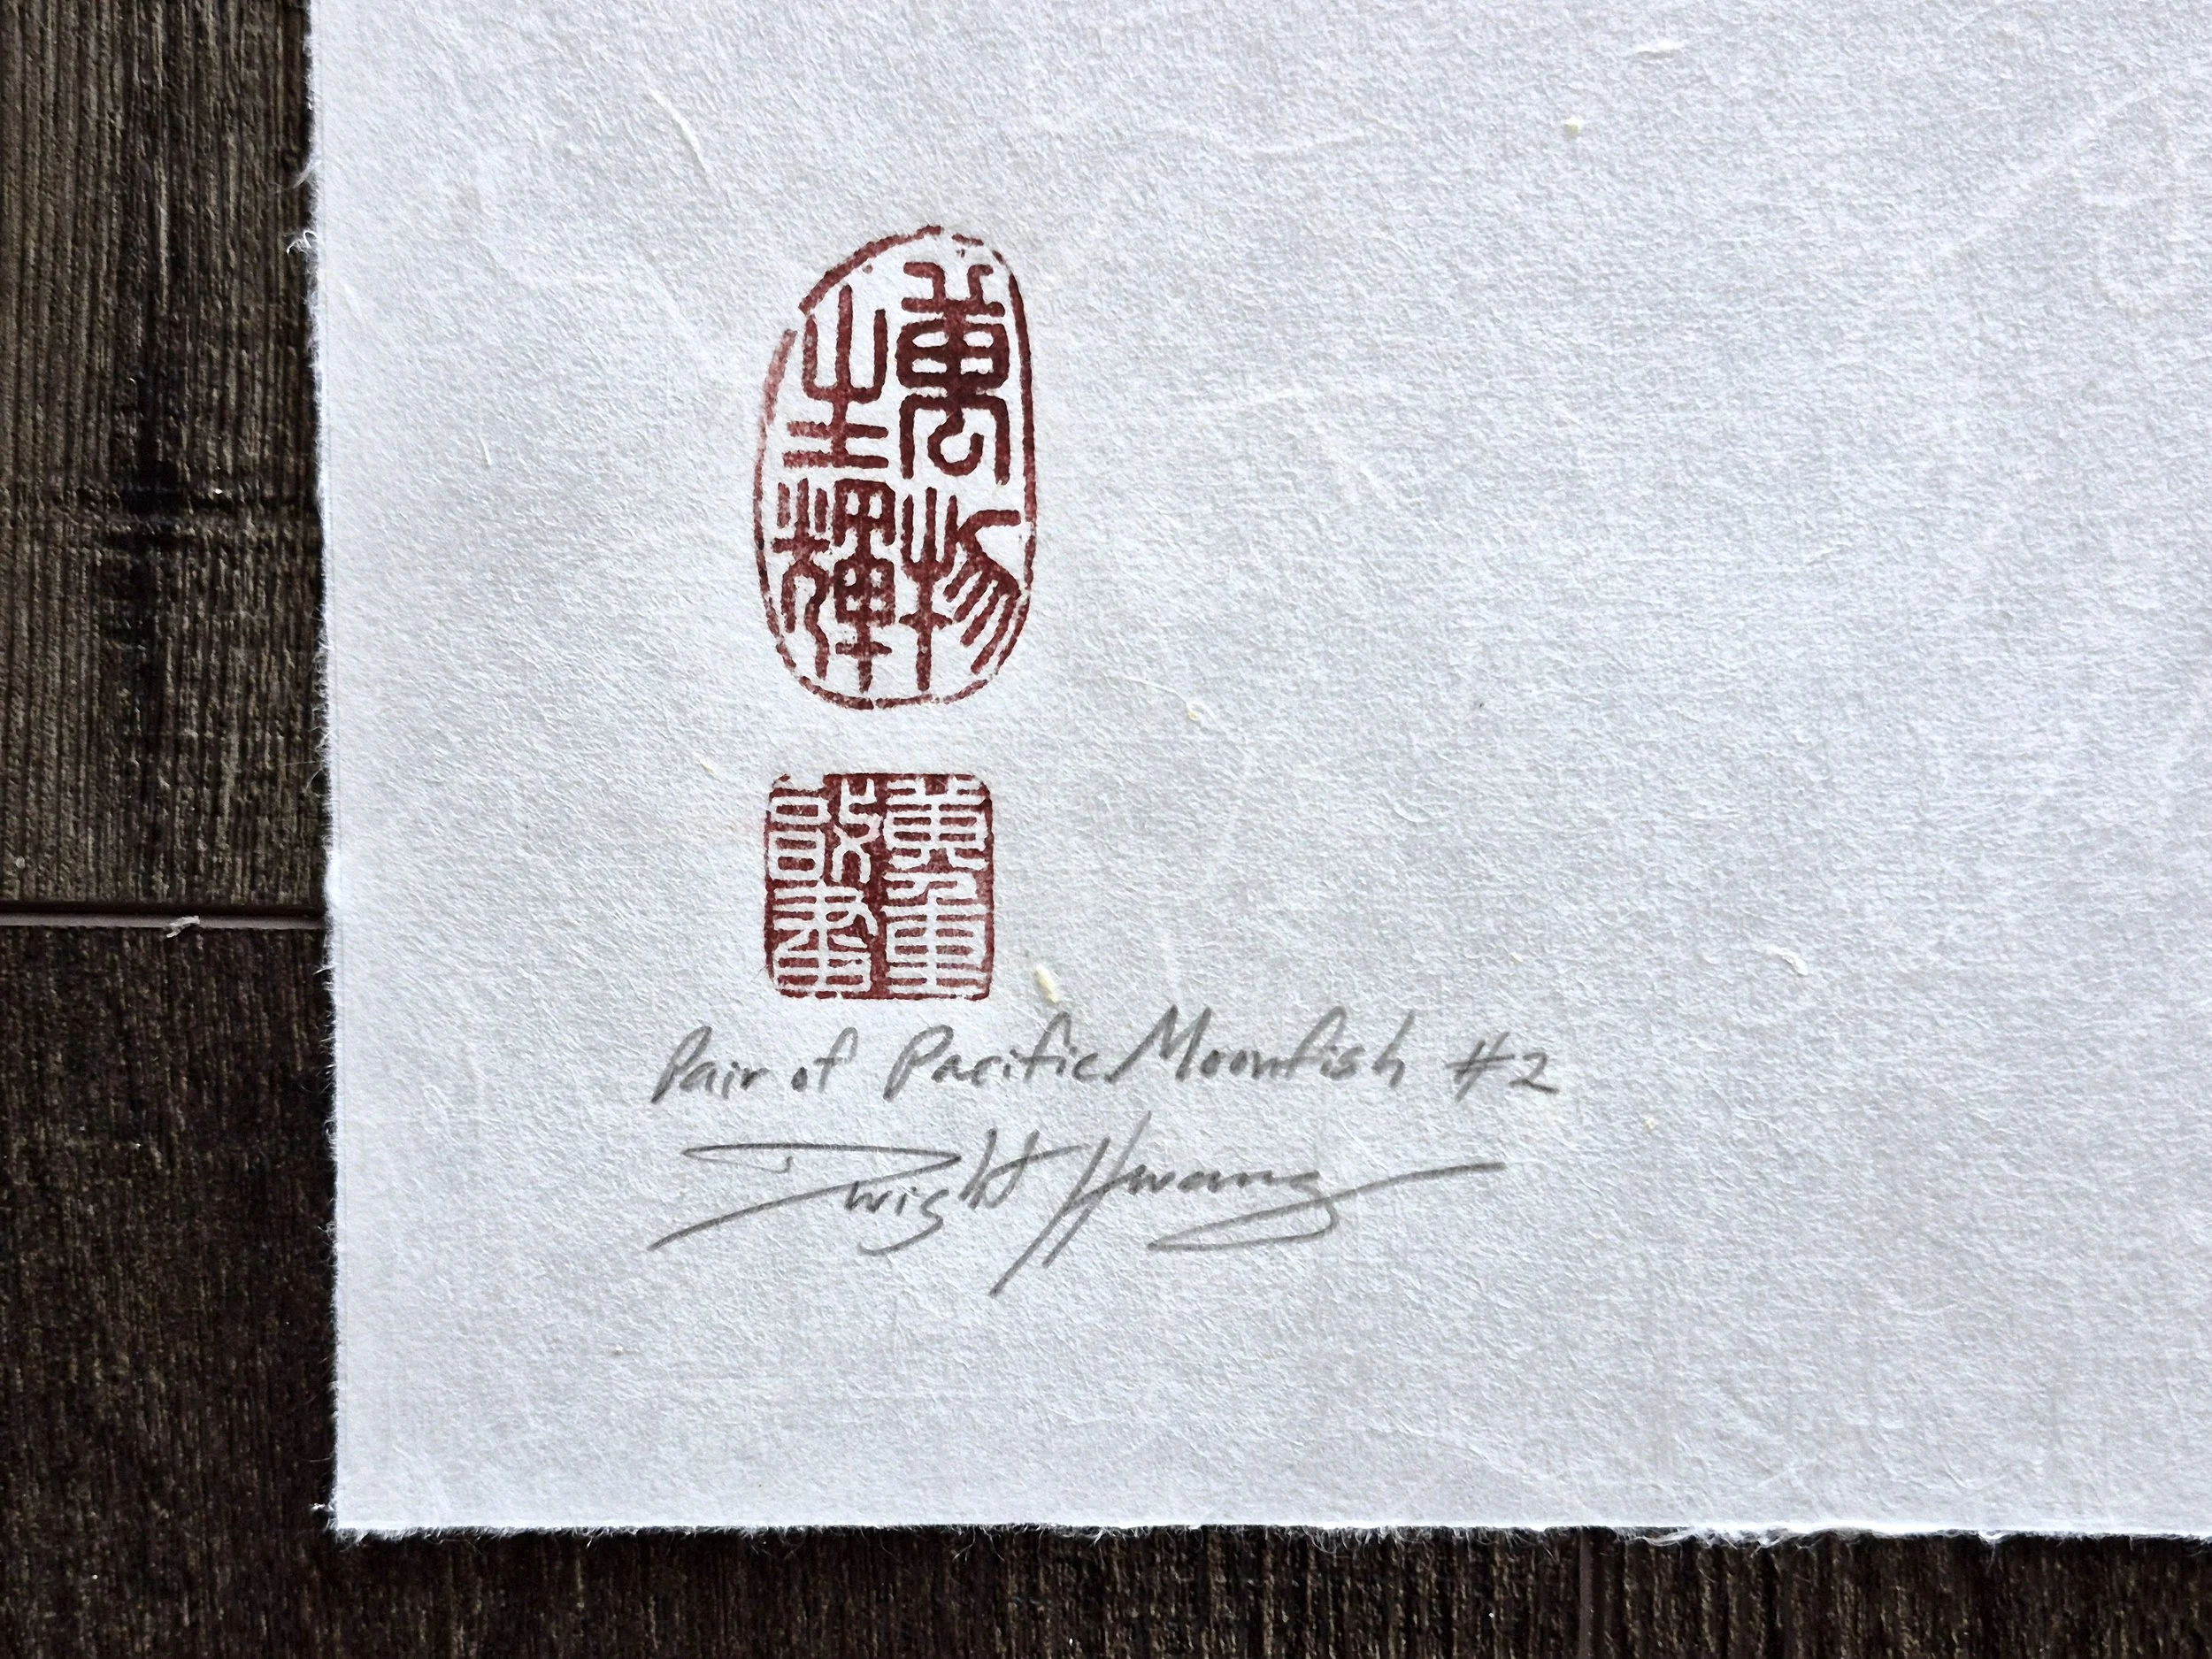 萬物
生輝
Pair of Pacific Moonfish #2
Dwight Hwang